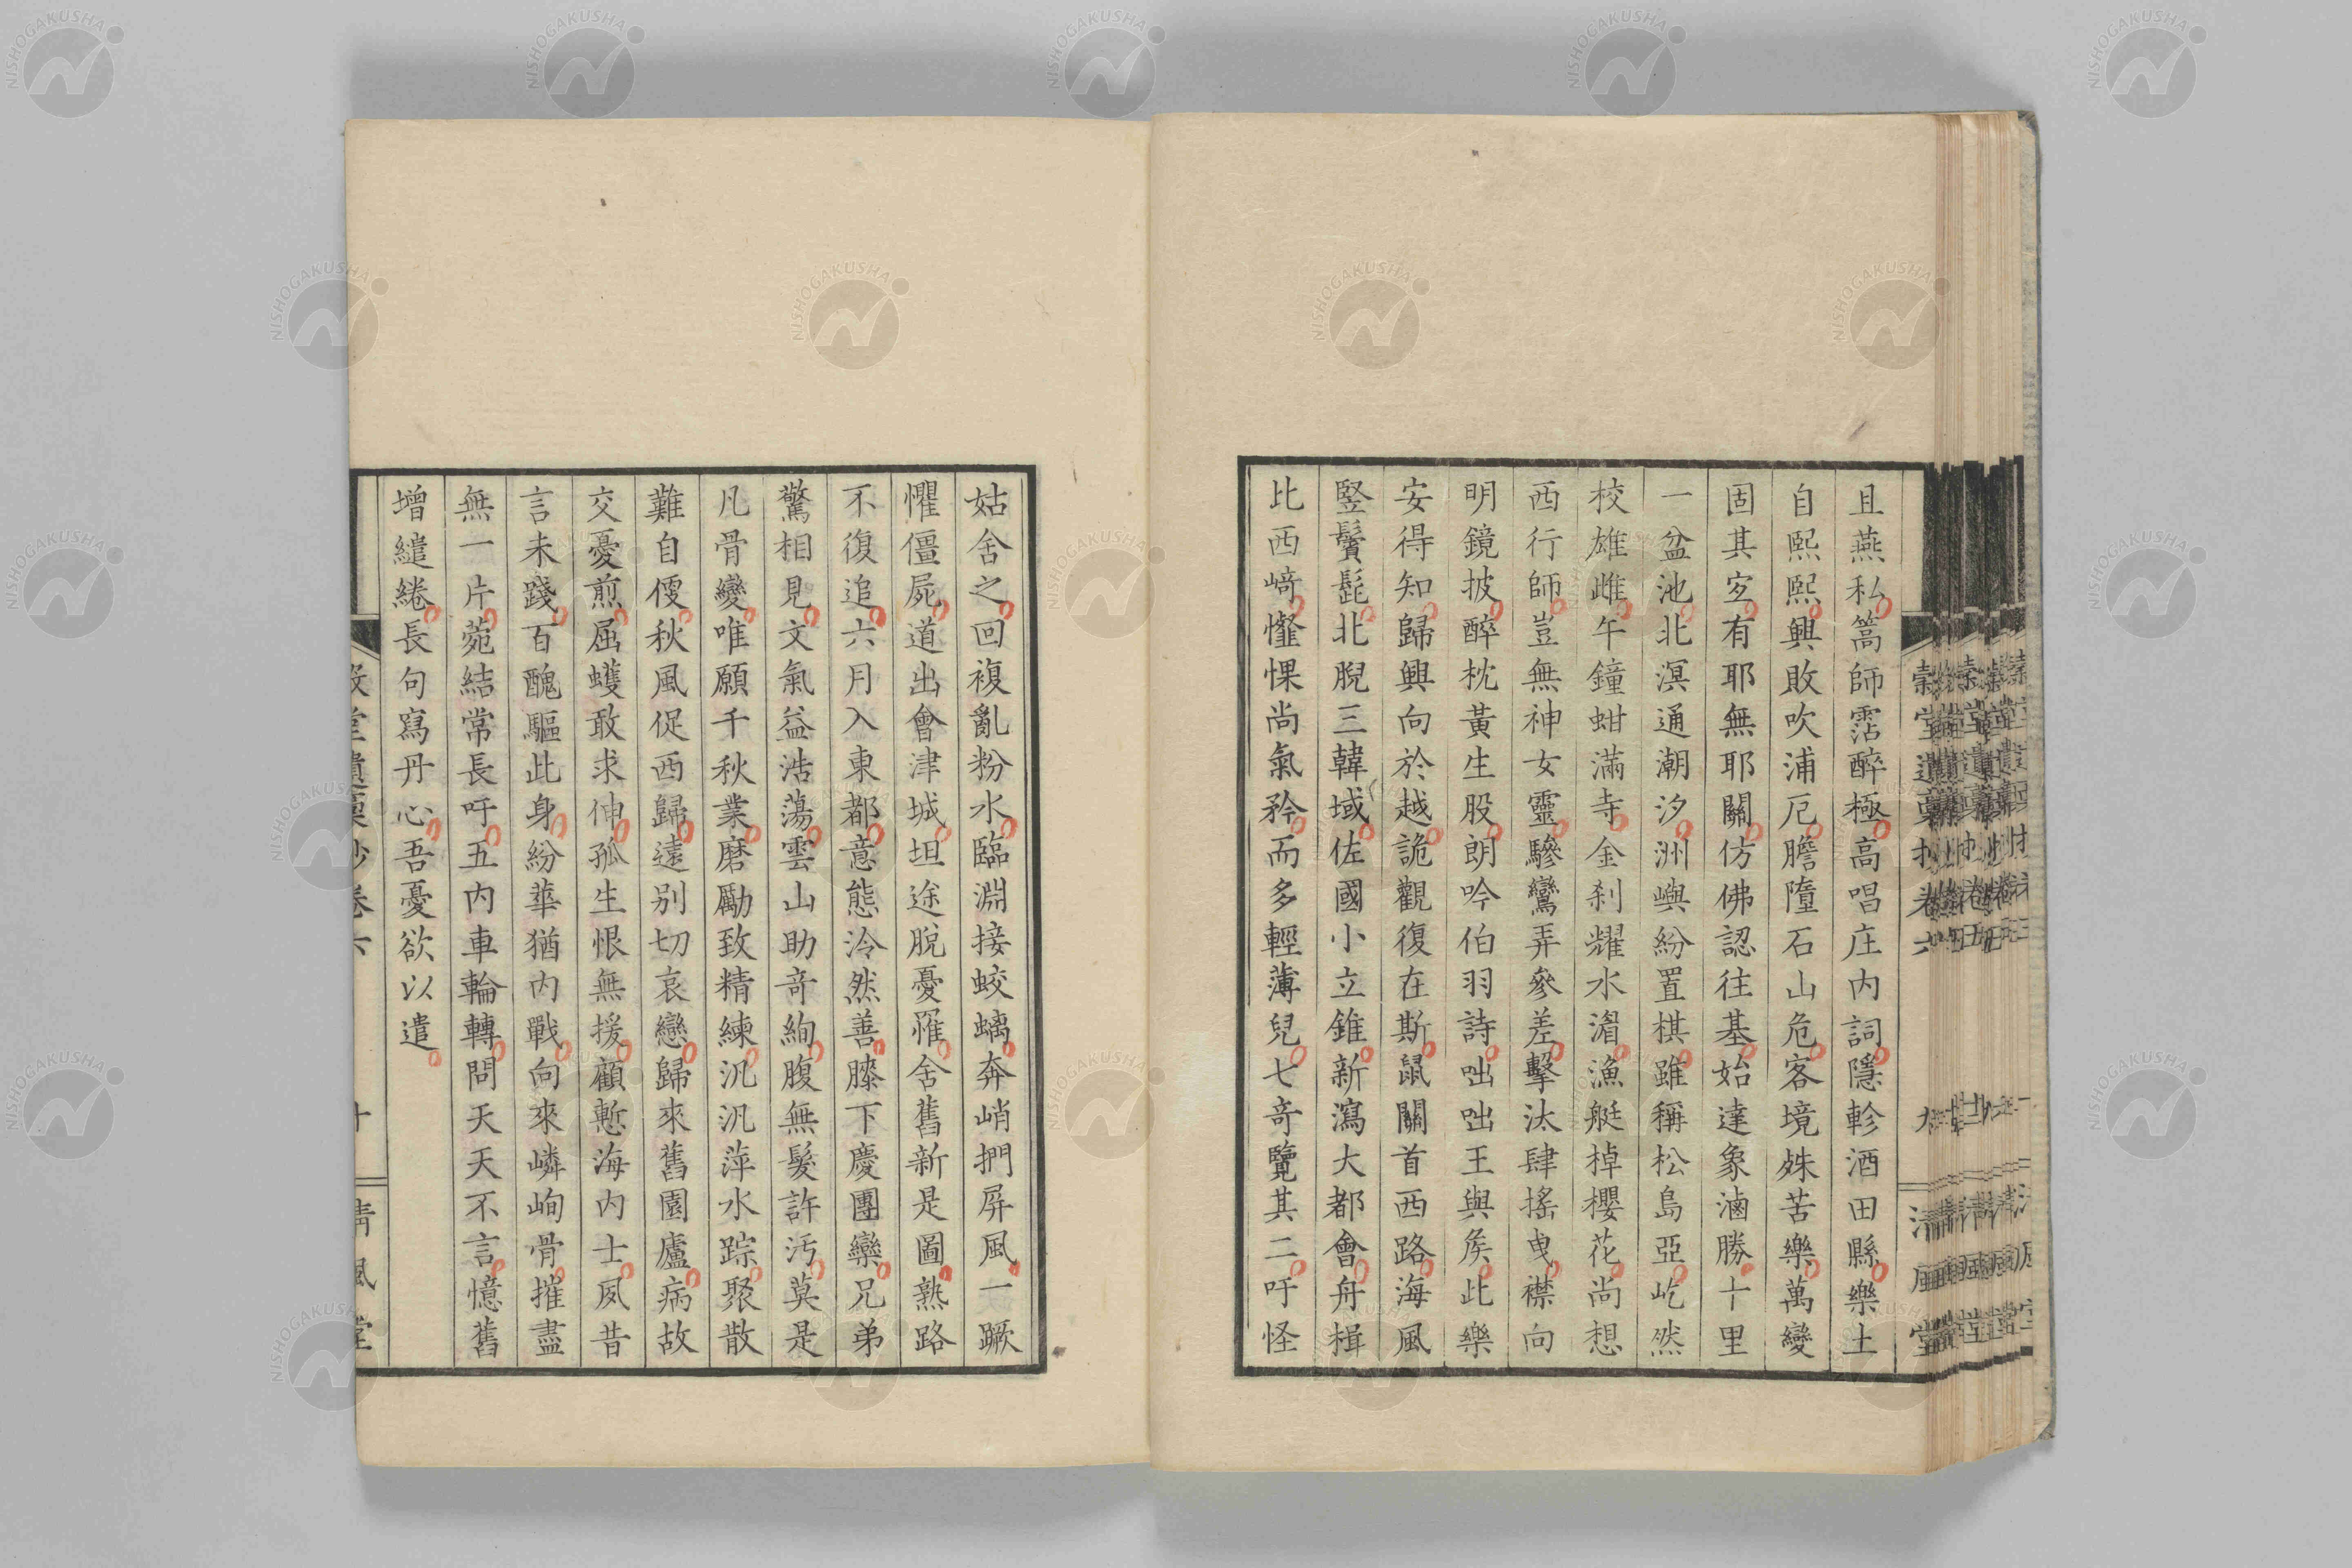 且燕私篙師霑醉極高唱庄内詞隱軫酒田縣樂土
自熙熙興敗吹浦厄膽隳石山危客境姝苦樂萬變
固其定有耶無耶關仿佛認往基始達象潟勝十里
一盆池北溟通潮汐洲嶼紛置棋雖稱松島亞屹然
校雄雌午鐘蚶滿寺金刹耀水湄漁艇棹櫻花尚想
西行師豈無神女靈驂鸞弄參差擊汰肆搖曳襟向
明鏡披醉枕黃生股朗吟伯羽詩咄咄王與矦此樂
安得知歸興向於越詭觀復在斯鼠關首西路海風
竪鬢髭北睨三韓域佐國小立錐新瀉大都會舟楫
比西﨑懽惈尚氣矜而多輕薄兒七竒覽其二吁怪
姑舍之回複亂粉水臨淵接蛟螭奔峭捫屏風一蹶
懼僵屍道出會津城坦途脫憂罹舍舊新是圖熟路
不復追六月入東都意態泠然善膝下慶團欒兄弟
驚相見文氣益浩蕩雲山助竒絢腹無髮許污莫是
凡骨變唯願千秋業磨勵致精練汎汎萍水踪聚散
難自偄秋風促西歸遠别切哀戀歸來舊園廬病故
交憂煎屈蠖敢求伸孤生恨無援顧慙海内士夙昔
言未踐百醜驅此身紛華猶内戰向來嶙峋骨摧盡
無一片菀結常長吁五内車輪轉問天天不言憶舊
增繾綣長句寫丹心吾憂欲以遣